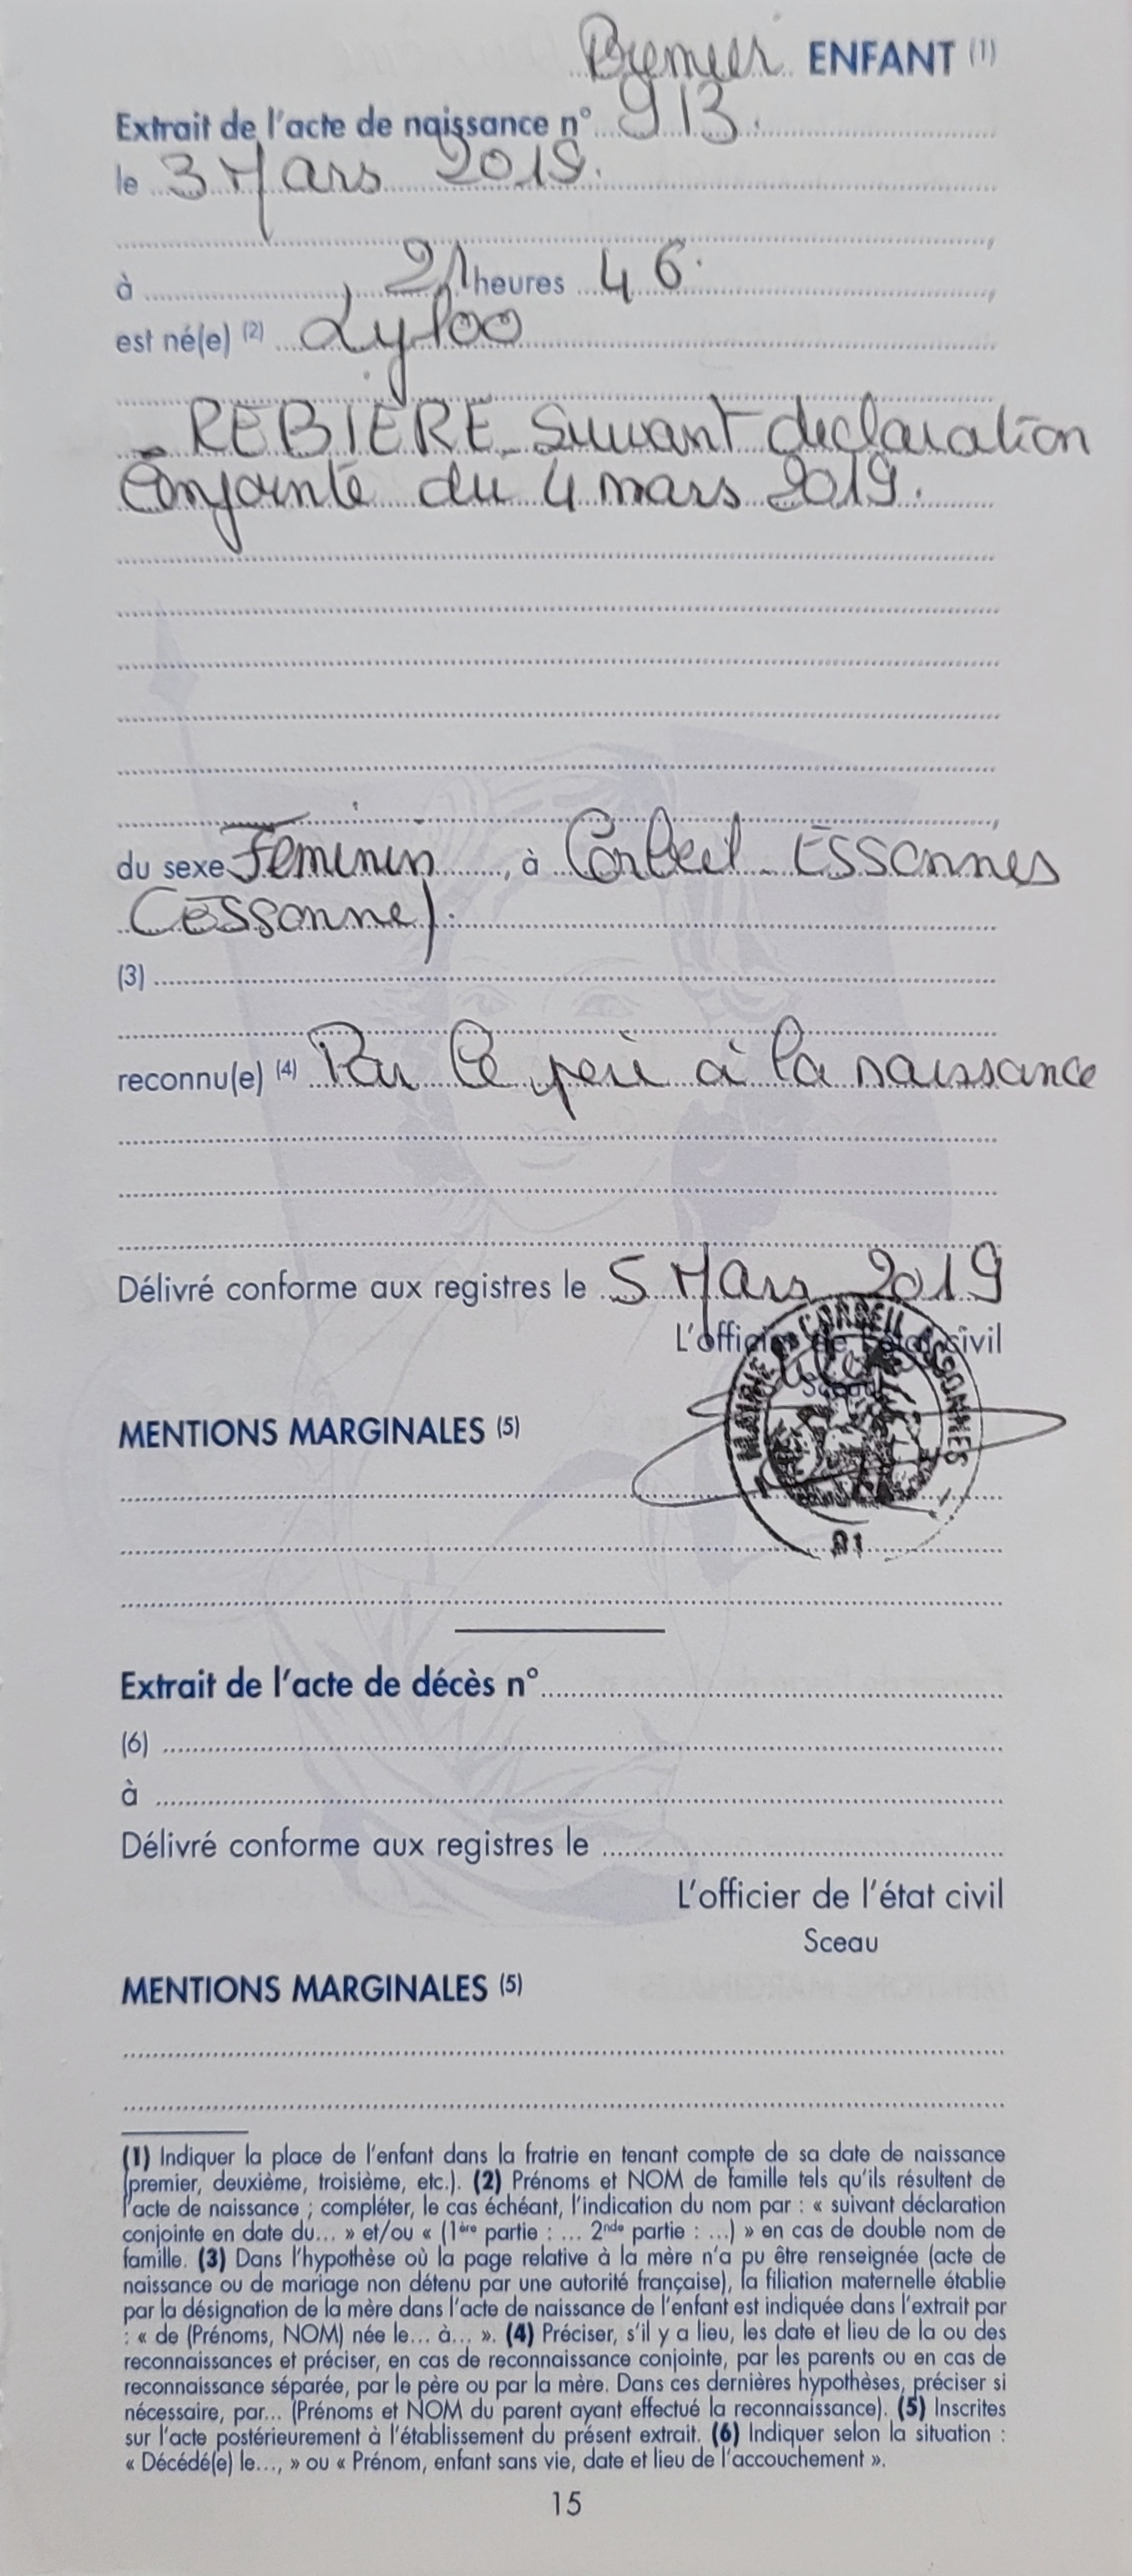 Premier ENFANT (1)
Extrait de l'acte de naissance n° 913.
le 3 Mars 2019.
à 21 heures 46.
est né(e) (2) Lyloo
- REBIERE - Suivant declaration
Conjointe du 4 mars 2019.
du sexe Féminin, à Corbeil - ESSonnes
(ESSonne).
(3)
reconnu(e) (4) Par le père à la naissance
Délivré conforme aux registres le 5 Mars 2019
L'officier de l'état civil
Sceau
MAIRIE DE CORBEIL ESSONNES
91
MENTIONS MARGINALES (5)
Extrait de l'acte de décès n°
(6)
à
Délivré conforme aux registres le
L'officier de l'état civil
Sceau
MENTIONS MARGINALES (5)
(1) Indiquer la place de l'enfant dans la fratrie en tenant compte de sa date de naissance
(premier, deuxième, troisième, etc.). (2) Prénoms et NOM de famille tels qu'ils résultent de
l'acte de naissance ; compléter, le cas échéant, l'indication du nom par : « suivant déclaration
conjointe en date du... » et/ou « (1ère partie : ... 2nde partie : ...) » en cas de double nom de
famille. (3) Dans l'hypothèse où la page relative à la mère n'a pu être renseignée (acte de
naissance ou de mariage non détenu par une autorité française), la filiation maternelle établie
par la désignation de la mère dans l'acte de naissance de l'enfant est indiquée dans l'extrait par
: « de (Prénoms, NOM) née le... à... ». (4) Préciser, s'il y a lieu, les date et lieu de la ou des
reconnaissances et préciser, en cas de reconnaissance conjointe, par les parents ou en cas de
reconnaissance séparée, par le père ou par la mère. Dans ces dernières hypothèses, préciser si
nécessaire, par... (Prénoms et NOM du parent ayant effectué la reconnaissance). (5) Inscrites
sur l'acte postérieurement à l'établissement du présent extrait. (6) Indiquer selon la situation :
« Décédé(e) le..., » ou « Prénom, enfant sans vie, date et lieu de l'accouchement ».
15